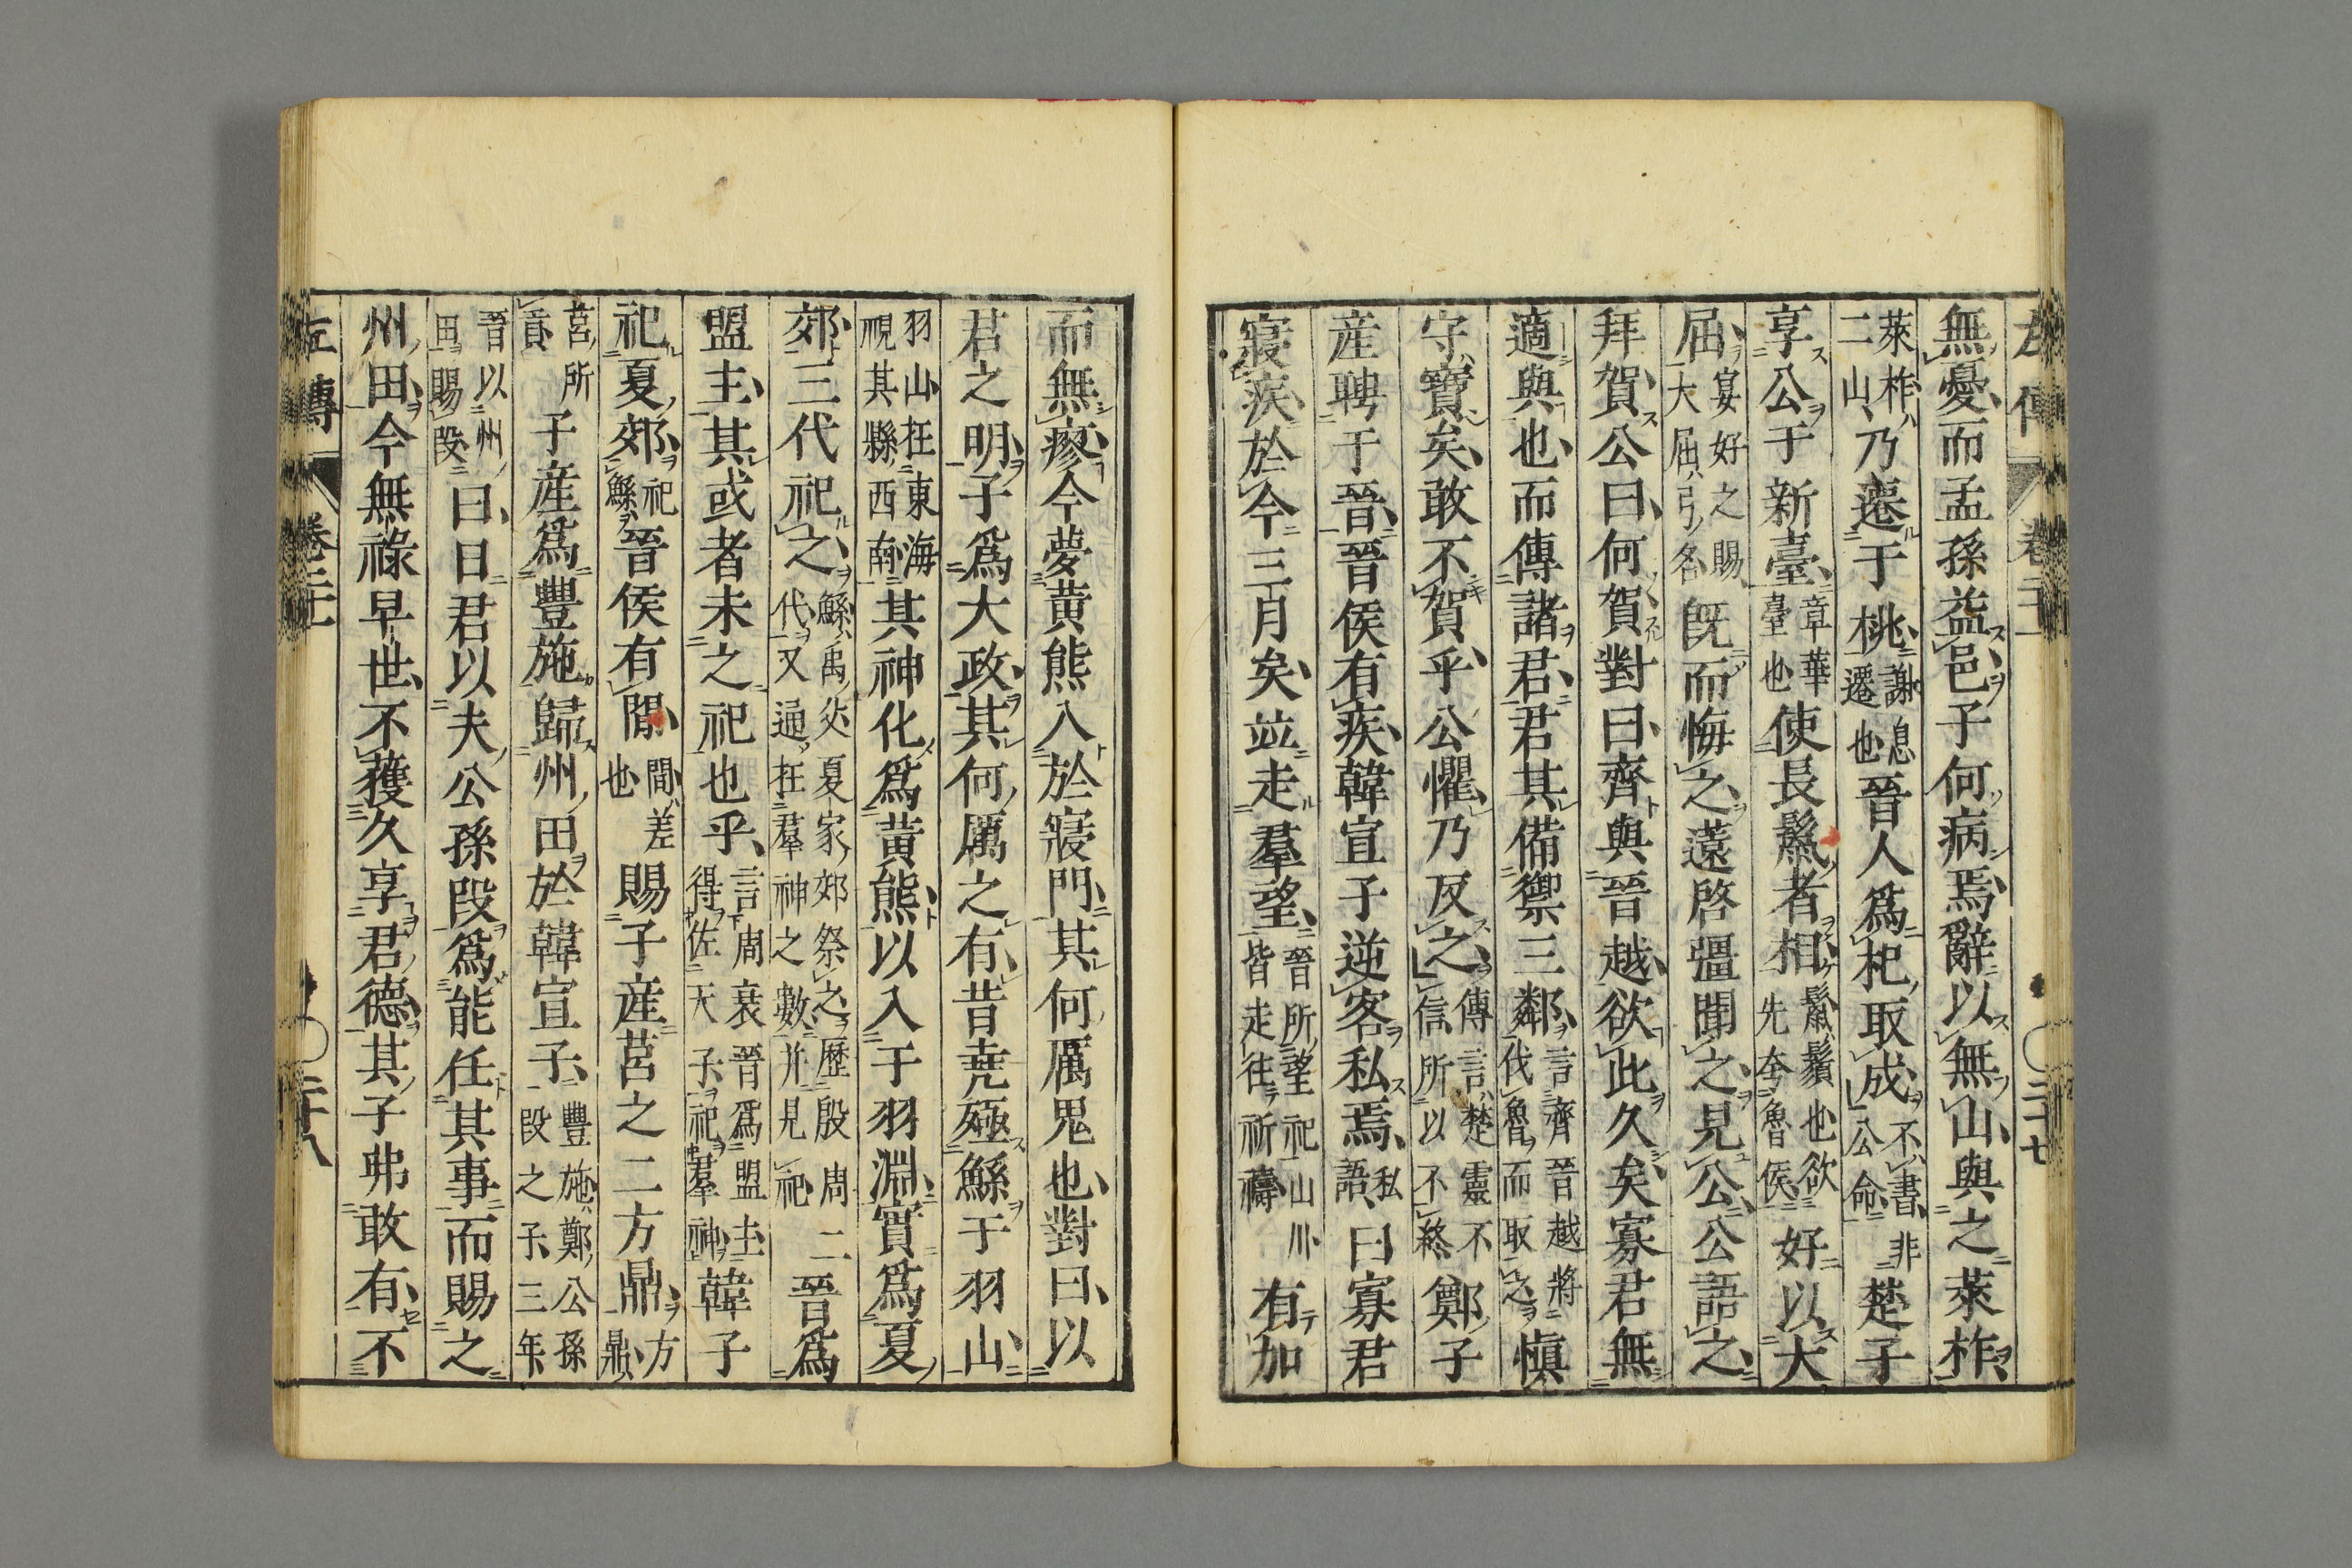 左傳 卷二十一 二十七
無憂而孟孫益邑子何病焉辭以無山與之萊柞
萊柞二山乃遷于桃謝息遷也晉人爲杞取成不書非公命楚子
享公于新臺章華臺也使長鬣者相鬣鬚也欲先夸魯侯好以大
屈宴好之賜大屈弓名既而悔之薳啓彊聞之見公公語之
拜賀公曰何賀對曰齊與晉越欲此久矣寡君無
適與也而傳諸君君其備禦三鄰言齊晉越將伐魯而取之愼
守寶矣敢不賀乎公懼乃反之傳言楚靈不信所以不終鄭子
産聘于晉晉侯有疾韓宣子逆客私焉私語曰寡君
寢疾於今三月矣並走羣望晉所望祀山川皆走往祈禱有加
而無瘳今夢黄熊入於寢門其何厲鬼也對曰以
君之明子爲大政其何厲之有昔堯殛鯀于羽山
羽山在東海祝其縣西南其神化爲黄熊以入于羽淵實爲夏
郊三代祀之鯀禹父夏家郊祭之歷殷周二代又通在羣神之數并見祀晉爲
盟主其或者未之祀也乎言周衰晉爲盟主得佐天子祀羣神韓子
祀夏郊祀鯀晉侯有間間差也賜子産莒之二方鼎方鼎
莒所貢子産爲豐施歸州田於韓宣子豐施鄭公孫段之子三年
晉以州田賜段曰日君以夫公孫段爲能任其事而賜之
州田今無祿早世不獲久享君德其子弗敢有不
左傳 卷二十一 二十八